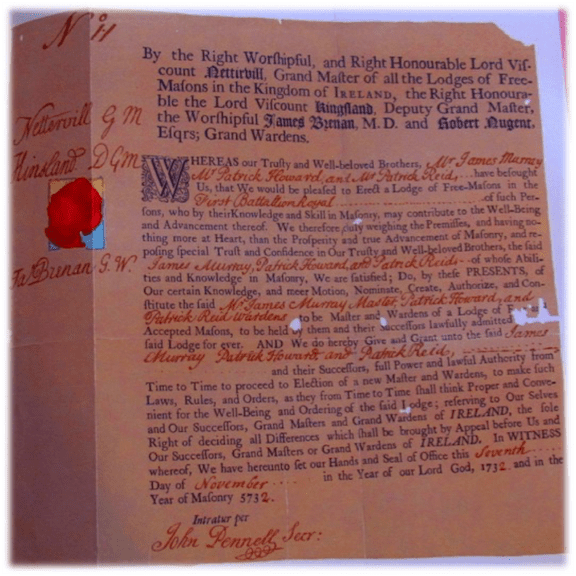 No 11
Nettervill G M
Kinsland D G M
Ja: Brenan G. W.
By the Right Worſhipful, and Right Honourable Lord Viſ-
count Nettirvill, Grand Maſter of all the Lodges of Free-
Maſons in the Kingdom of IRELAND, the Right Honoura-
ble the Lord Viſcount Kingſland, Deputy Grand Maſter,
the Worſhipful James Brenan, M.D. and Robert Nugent,
Eſqrs; Grand Wardens.
WHEREAS our Truſty and Well-beloved Brothers, Mr James Murray
Mr Patrick Howard, and Mr Patrick Reid, have beſought
Us, that We would be pleaſed to Erect a Lodge of Free-Maſons in the
First Battallion Royal of ſuch Per-
ſons, who by their Knowledge and Skill in Maſonry, may contribute to the Well-Being
and Advancement thereof. We therefore, duly weighing the Premiſſes, and having no-
thing more at Heart, than the Proſperity and true Advancement of Maſonry, and re-
poſing ſpecial Truſt and Confidence in Our Truſty and Well-beloved Brothers, the ſaid
James Murray, Patrick Howard, and Patrick Reid of whoſe Abili-
ties and Knowledge in Maſonry, We are ſatisfied; Do, by theſe PRESENTS, of
Our certain Knowledge, and meer Motion, Nominate, Create, Authorize, and Con-
ſtitute the ſaid Mr James Murray Master, Patrick Howard, and
Patrick Reid wardens to be Maſter and Wardens of a Lodge of
Accepted Maſons, to be held by them and their Succeſſors lawfully admitted
ſaid Lodge for ever. AND We do hereby Give and Grant unto the ſaid James
Murray Patrick Howard and Patrick Reid,
and their Succeſſors, full Power and lawful Authority from
Time to Time to proceed to Election of a new Maſter and Wardens, to make ſuch
Laws, Rules, and Orders, as they from Time to Time ſhall think Proper and Conve-
nient for the Well-Being and Ordering of the ſaid Lodge; reſerving to Our Selves
and Our Succeſſors, Grand Maſters and Grand Wardens of IRELAND, the ſole
Right of deciding all Differences which ſhall be brought by Appeal before Us and
Our Succeſſors, Grand Maſters or Grand Wardens of IRELAND. In WITNESS
whereof, We have hereunto ſet our Hands and Seal of Office this Seventh
Day of November in the Year of our Lord God, 1732. and in the
Year of Maſonry 5732.
Intratur per
John Pennell Secr: